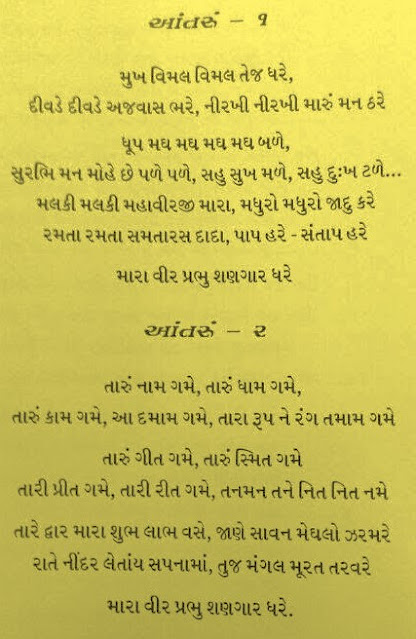 આંતરું – ૧
મુખ વિમલ વિમલ તેજ ધરે,
દીવડે દીવડે અજવાસ ભરે, નીરખી નીરખી મારું મન ઠરે
ધૂપ મઘ મઘ મઘ મઘ બળે,
સુરભિ મન મોહે છે પળે પળે, સહુ સુખ મળે, સહુ દુઃખ ટળે...
મલકી મલકી મહાવીરજી મારા, મધુરો મધુરો જાદુ કરે
રમતા રમતા સમતારસ દાદા, પાપ હરે - સંતાપ હરે
મારા વીર પ્રભુ શણગાર ધરે
આંતરું – ૨
તારું નામ ગમે, તારું ધામ ગમે,
તારું કામ ગમે, આ દમામ ગમે, તારા રૂપ ને રંગ તમામ ગમે
તારું ગીત ગમે, તારું સ્મિત ગમે
તારી પ્રીત ગમે, તારી રીત ગમે, તનમન તને નિત નિત નમે
તારે દ્વાર મારા શુભ લાભ વસે, જાણે સાવન મેઘલો ઝરમરે
રાતે નીંદર લેતાંય સપનામાં, તુજ મંગલ મૂરત તરવરે
મારા વીર પ્રભુ શણગાર ધરે.